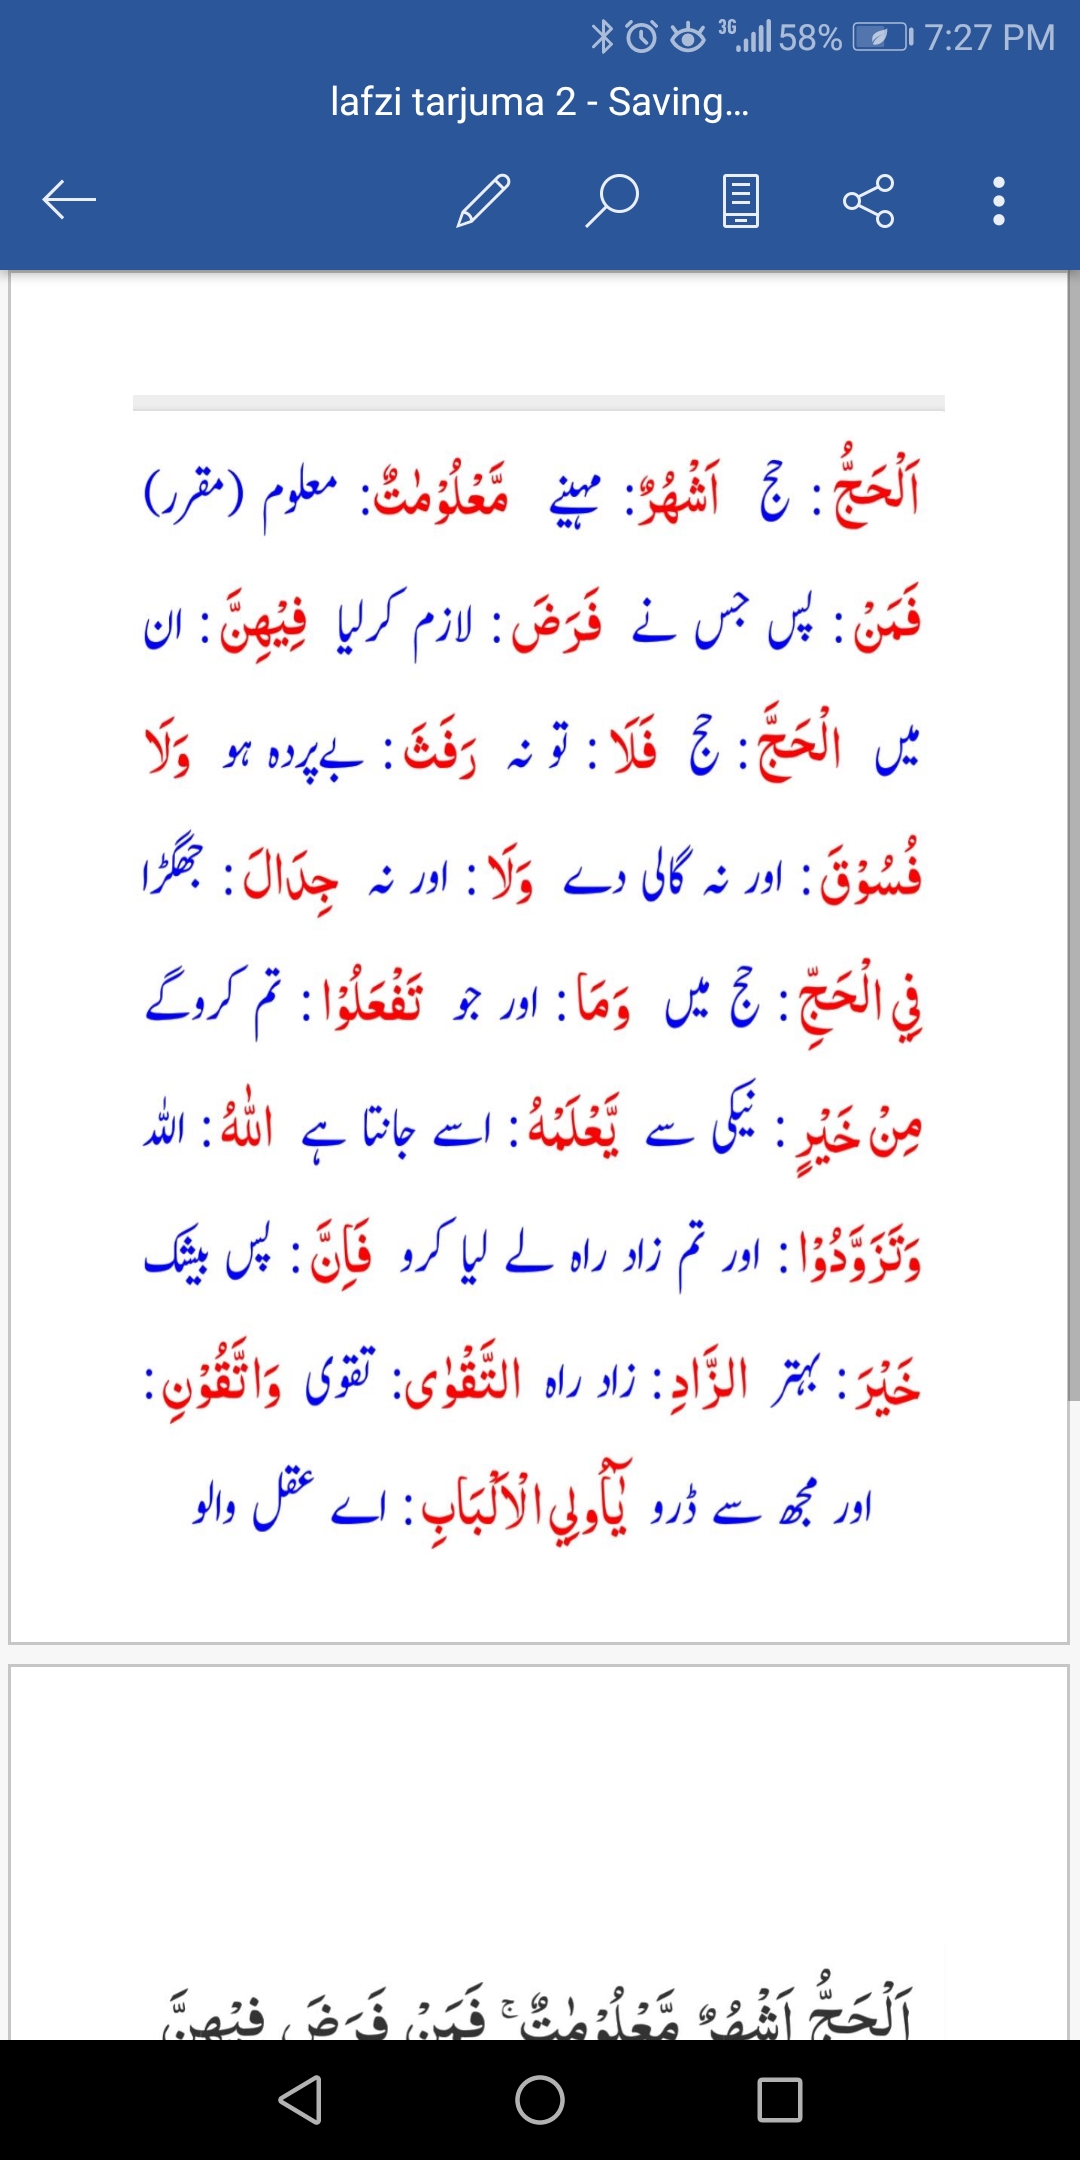 3G 58% 7:27 PM
lafzi tarjuma 2 - Saving...
اَلْحَجُّ : حج اَشْهُرٌ: مہینے مَّعْلُوْمٰتٌ: معلوم (مقرر)
فَمَنْ : پس جس نے فَرَضَ : لازم کرلیا فِيْهِنَّ : ان
میں الْحَجَّ: حج فَلَا : تو نہ رَفَثَ : بےپردہ ہو وَلَا
فُسُوْقَ : اور نہ گالی دے وَلَا : اور نہ جِدَالَ : جھگڑا
فِي الْحَجِّ : حج میں وَمَا: اور جو تَفْعَلُوْا : تم کروگے
مِنْ خَيْرٍ : نیکی سے يَّعْلَمْهُ: اسے جانتا ہے اللّٰهُ : اللہ
وَتَزَوَّدُوْا : اور تم زاد راہ لے لیا کرو فَاِنَّ : پس بیشک
خَيْرَ : بہتر الزَّادِ: زاد راہ التَّقْوٰى: تقوی وَاتَّقُوْنِ :
اور مجھ سے ڈرو يٰٓاُولِي الْاَلْبَابِ : اے عقل والو
اَلْحَجُّ اَشْهُرٌ مَّعْلُوْمٰتٌ ۚ فَمَنْ فَرَضَ فِيْهِنَّ